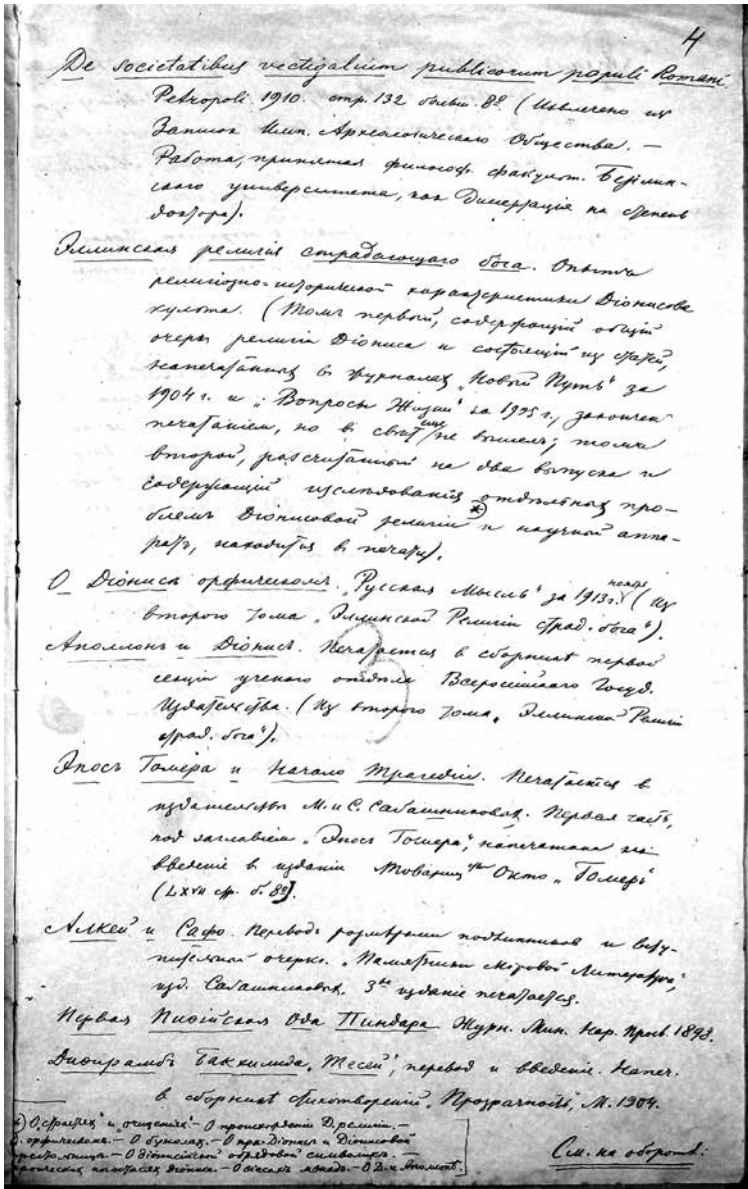 4
De societatibus vectigalium publicorum populi Romani
Petropoli. 1910. стр. 132 больш. 8º. (Извлечено из
Записок Имп. Археологического Общества. —
Работа, принятая философ. факульт. Берлин-
ского университета, как диссертація на степень
доктора).
Эллинская религія страдающаго бога. Опыты
религіозно-исторической характеристики Діонисова
культа. (Томъ первый, содержащій общій
очеркъ религіи Діониса и состоящій из статей,
напечатанных в журналах „Новый Путь" за
1904 г. и „Вопросы Жизни" за 1905 г., закончен
печатаніем, но в свет еще не вышелъ; томъ
второй, разсчитанный на два выпуска и
содержащій изслѣдованія отдѣльных про-
блемъ Діонисовой религіи *) и научный аппа-
ратъ, находится в печати).
О Діонисѣ орфическомъ. „Русская Мысль" за 1913 г. ноябрь (Из
второго тома „Эллинской Религіи страд. бога").
Аполлонъ и Діонисъ. Печатается в сборникѣ первой
секціи ученого отдѣла Всероссійскаго Госуд.
Издательства. (Из второго тома „Эллинской Религіи
страд. бога").
Эпосъ Гомера и начало трагедіи. Печатается в
издательствѣ М. и С. Сабашниковых. Первая часть,
под заглавіем „Эпосъ Гомера", напечатана как
введеніе в изданіи Товарищ-ва Окто „Гомеръ"
(LXVII стр. б. 8º).
Алкей и Сафо. Переводъ размѣрами подлинников и всту-
пительный очеркъ. „Памятники Міровой Литературы",
изд. Сабашниковых. 3-ье изданіе печатается.
Первая Пиѳійская Ода Пиндара. Журн. Мин. Нар. Просв. 1899.
Диѳирамбъ Бакхилида „Тесей", перевод и введеніе. Напеч.
в сборникѣ стихотвореній „Прозрачность", М. 1904.
*) О „страстях" и „очищеніи". — О происхожденіи Д. религіи. —
орфическомъ. — О буколах. — О пра-Діонисѣ и Діонисовой
О діонисійской обрядовой символикѣ. —
ипостасях Діониса. — О ѳіасах менад. — О Д. и Аполлонѣ.
См. на оборотѣ: